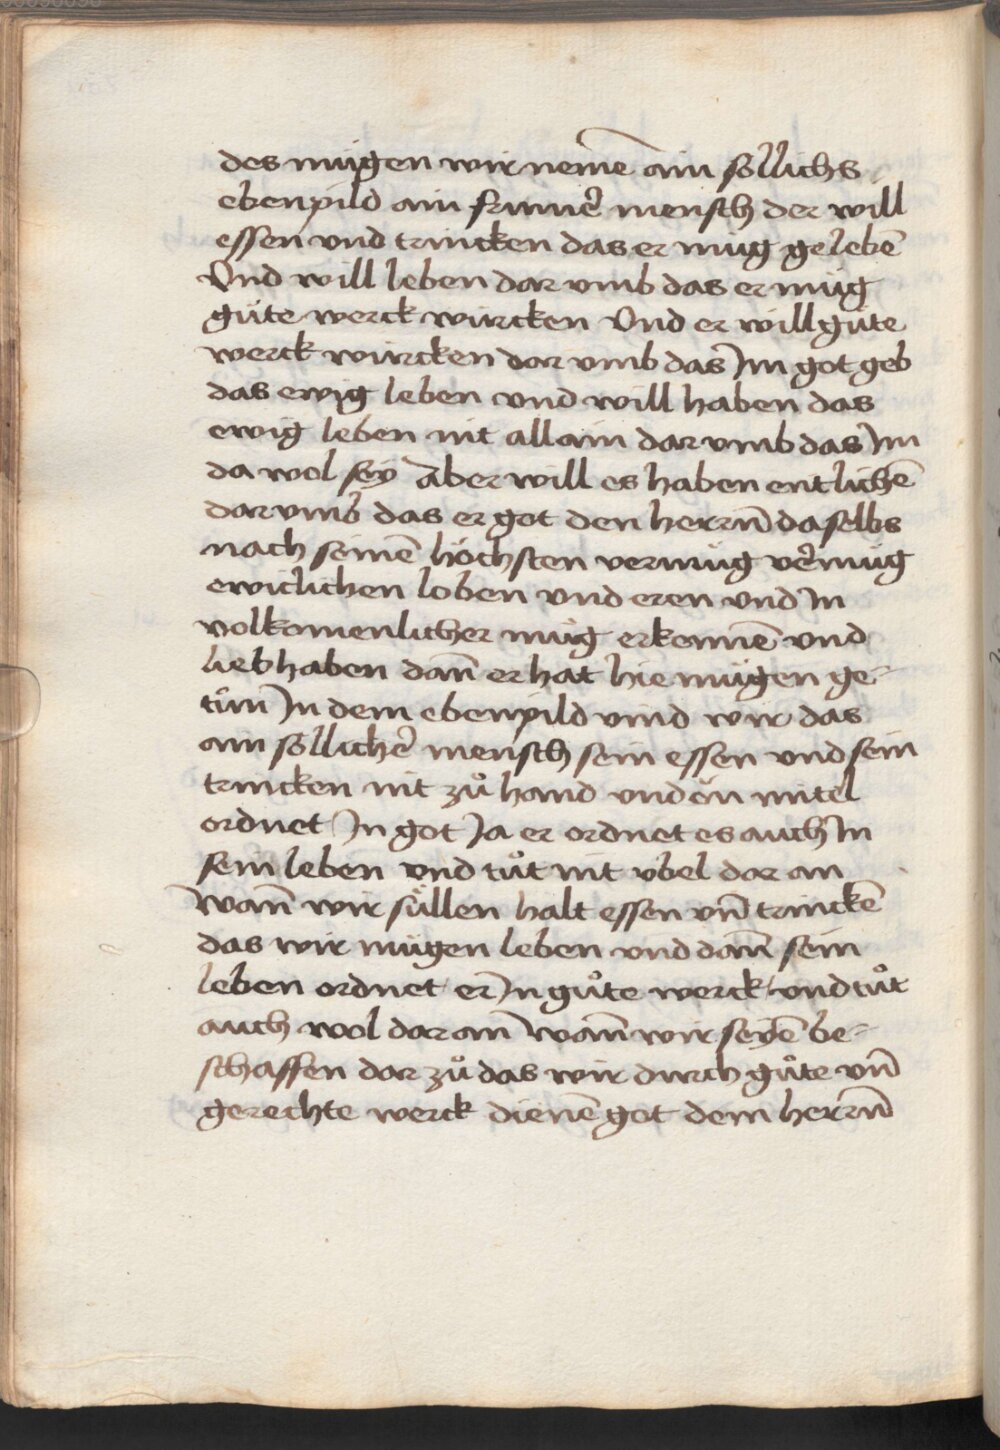 des mügen wir nemē ain söllichs
ebenpild ain frumer̄ mensch der will
essen vnd trincken das er müg gelebē
Vnd will leben dar vmb das er müg
gůte werck würcken Vnd er will gůte
werck würcken dar vmb das Jm got geb
das ewig leben vnd will haben das
ewig leben nit allain dar vmb das Jm
da wol sey Aber will es haben entlichē
dar vmb das er got den herrn̄ daselbs
nach seinē höchsten vermüg vermüg
ewiclichen loben vnd eren vnd Jn
volkomenlicher müg erkennē vnd
liebhaben dan̄ er hat hie mügen ge-
tůn Jn dem ebenpild vind wir das
ain söllicher̄ mensch sein essen vnd sein
trincken nit zů hand vnd ön mitel
ordnet Jn got Ja er ordnet es auch Jn
sein leben vnd tůt nit vbel dar an
Wann̄ wir süllen halt essen vn̄ trinckē
das wir mügen leben vnd dan̄ sein
leben ordnet er Jn gůte werck vnd tůt
auch wol dar an Wann̄ wir seyē be-
schaffen dar zů das wir durch gůte vn̄
gerechte werck dienē got dem herrn̄